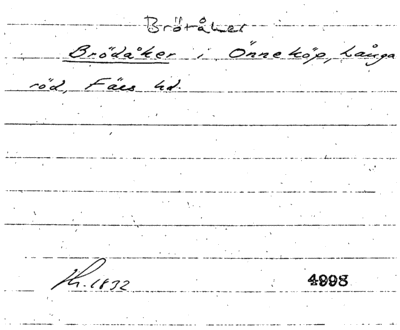 Brötåker
Brödåker i Önneköp, Långa
röd, Färs hd.
Kr. 1892
4998